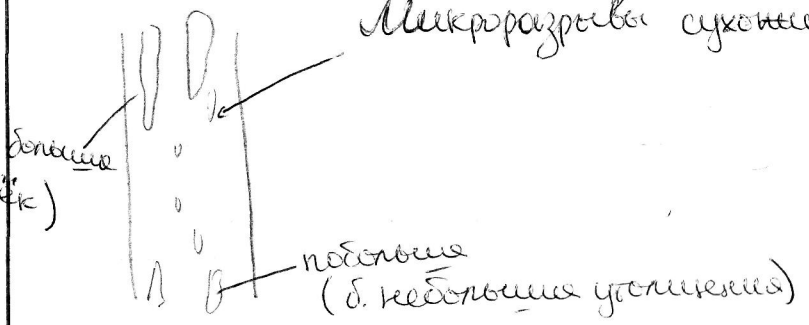 Микроразрывы сухожи
больша
ёк)
побольша
(б. небольшиа утолщения)